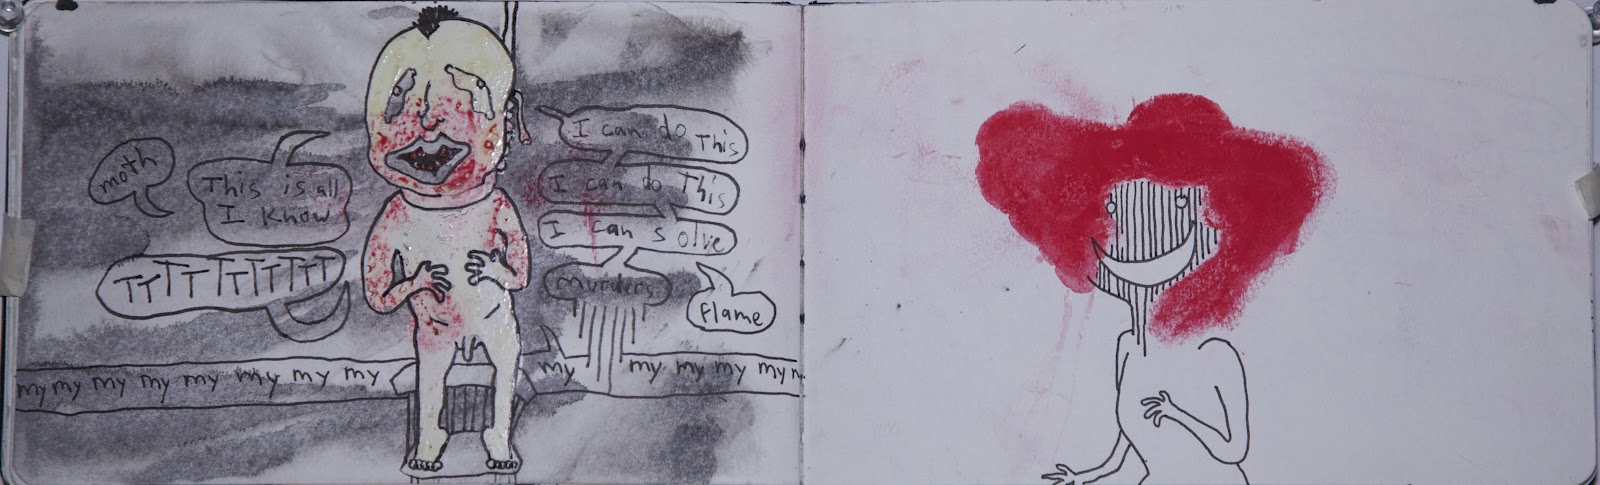 moth
This is all
I know
TTTTTTTTTT
I can do This
I can do This
I can solve
murders
Flame
my my my my my my my my my my my my my m